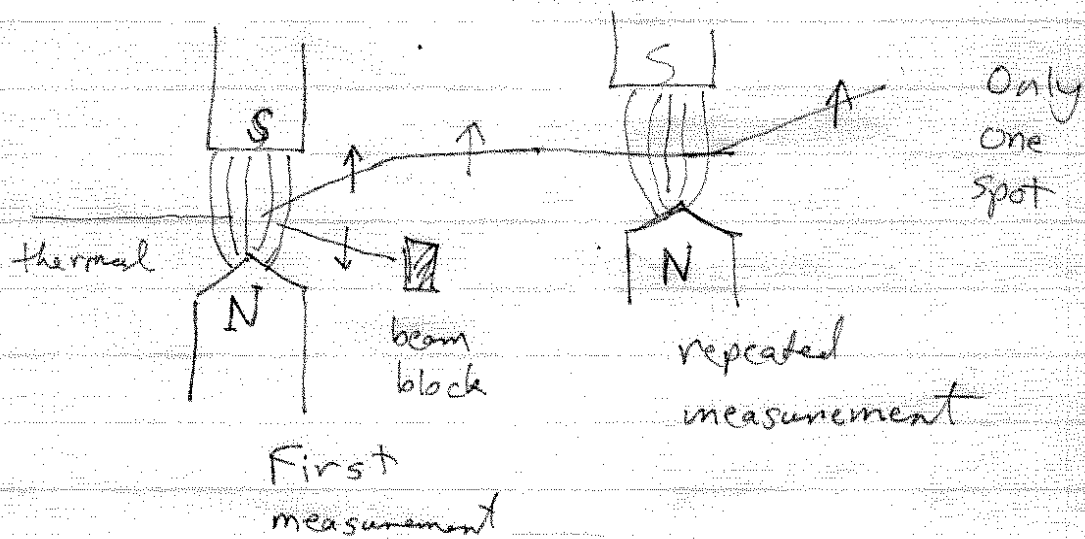 S
S
Only
one
spot
thermal
N
N
beam
block
repeated
measurement
First
measurement